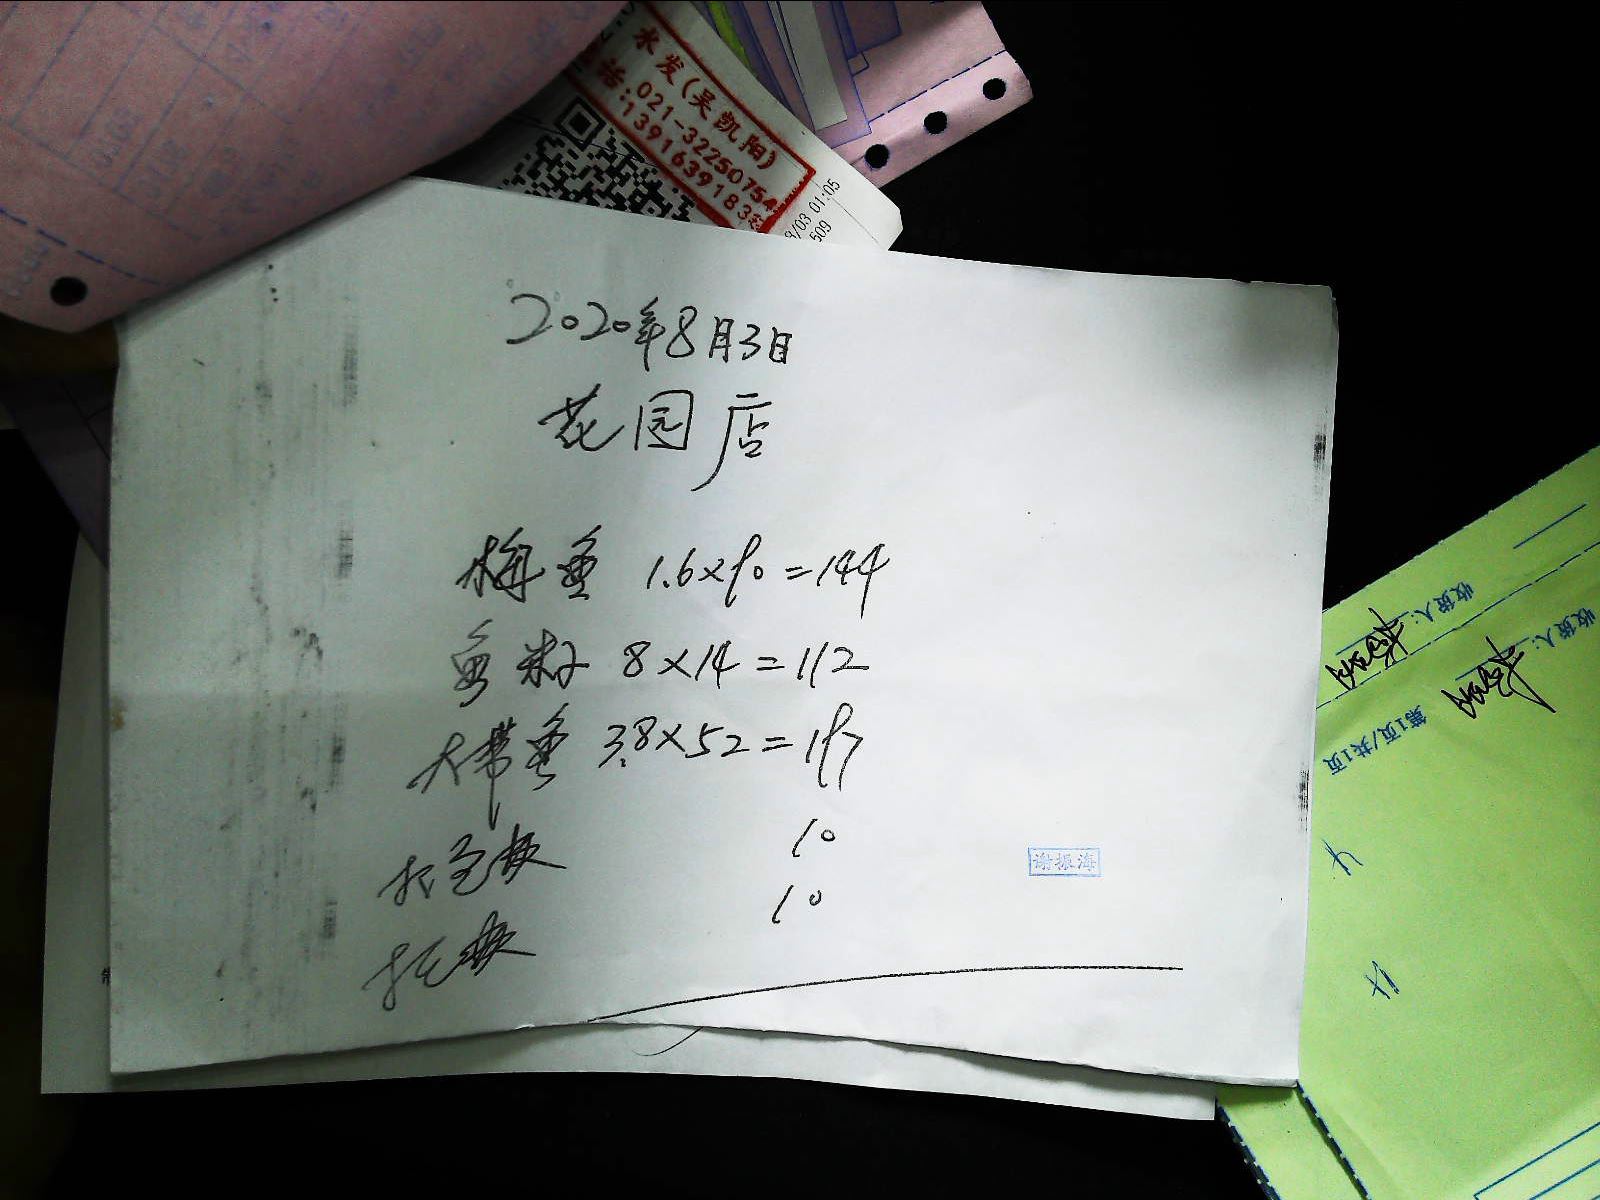 水发(吴凯阳)
话:021-32250754
1391639183
8/03 01:05
509
2020年8月3日
花园店
梅鱼 1.6×90=144
鱼籽 8×14=112
大带鱼 3.8×52=197
打包费 10
打包费 10
谢振海
收货人:
收货人:
第1页/共1页